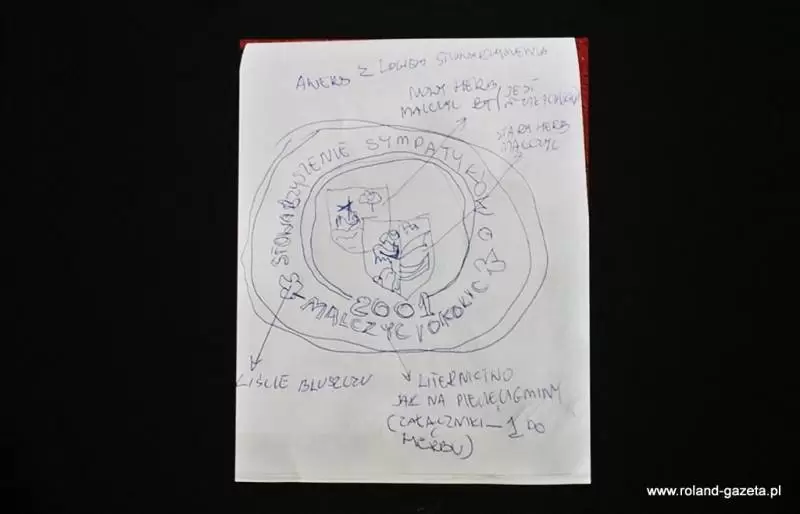 AWERS Z LOGEM STOWARZYSZENIA
NOWY HERB
MALCZYC
JEST
STARY HERB
MALCZYC
STOWARZYSZENIE SYMPATYKÓW
2001
MALCZYC I OKOLIC
LIŚCIE BLUSZCZU
LITERNICTWO
JAK NA PIECZĘCI GMINY
(ZAŁĄCZNIKI – 1 DO
HERBU)
www.roland-gazeta.pl